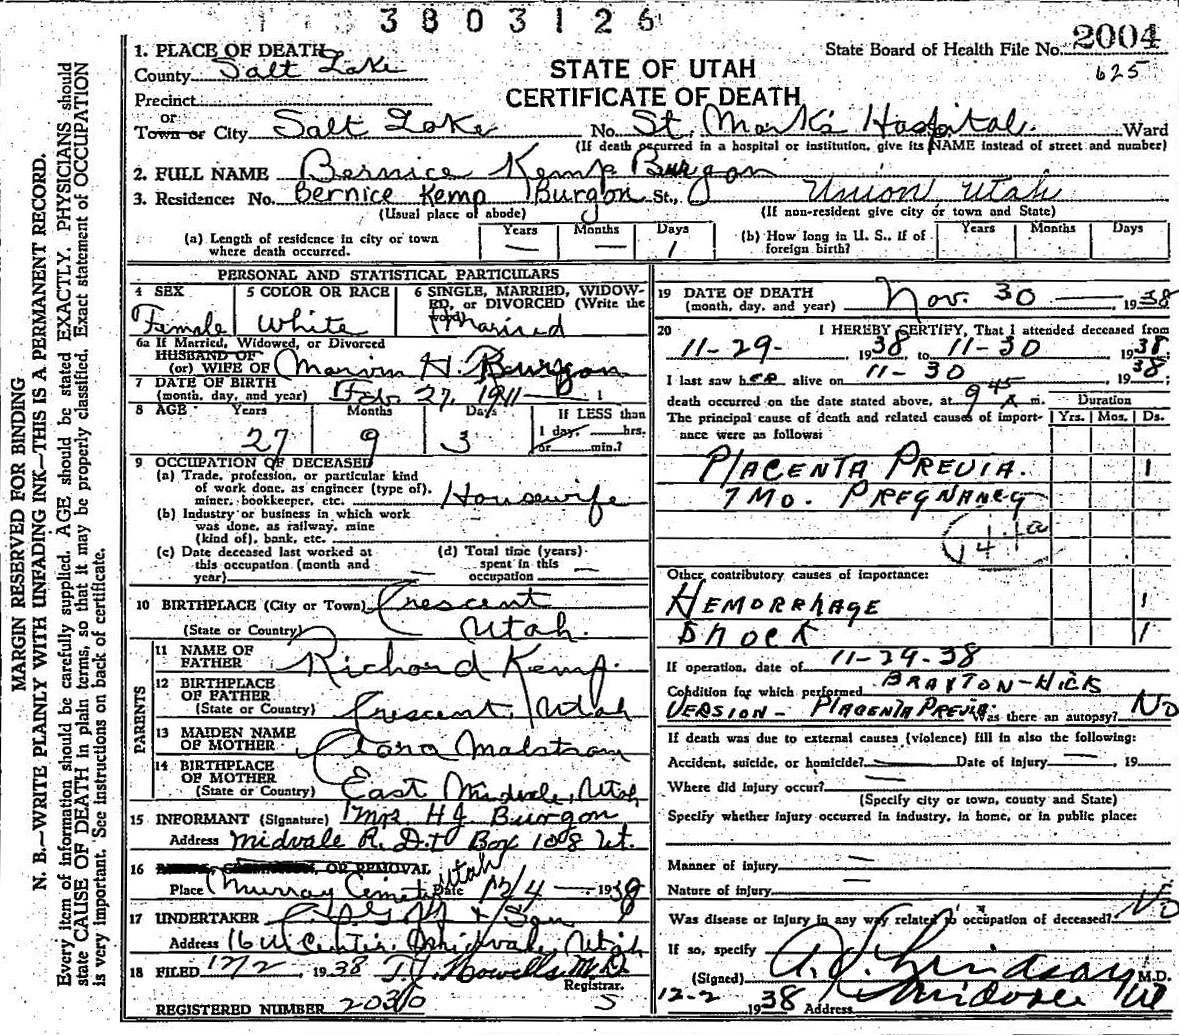 3803126
State Board of Health File No. 2004
625
STATE OF UTAH
CERTIFICATE OF DEATH
MARGIN RESERVED FOR BINDING
N. B.—WRITE PLAINLY WITH UNFADING INK—THIS IS A PERMANENT RECORD.
Every item of information should be carefully supplied. AGE should be stated EXACTLY. PHYSICIANS should
state CAUSE OF DEATH in plain terms, so that it may be properly classified. Exact statement of OCCUPATION
is very important. See instructions on back of certificate.
1. PLACE OF DEATH
County Salt Lake
Precinct
or
Town or City Salt Lake No. St. Mark's Hospital Ward
(If death occurred in a hospital or institution, give its NAME instead of street and number)
2. FULL NAME Bernice Kemp Burgon
3. Residence: No. Bernice Kemp Burgon St., Union, Utah
(Usual place of abode) (If non-resident give city or town and State)
(a) Length of residence in city or town where death occurred. Years — Months — Days 1
(b) How long in U. S., if of foreign birth? Years Months Days
PERSONAL AND STATISTICAL PARTICULARS
4 SEX Female
5 COLOR OR RACE White
6 SINGLE, MARRIED, WIDOWED, or DIVORCED (Write the word) Married
6a If Married, Widowed, or Divorced
HUSBAND OF
(or) WIFE OF Marvin H. Burgon
7 DATE OF BIRTH
(month, day, and year) Feb. 27, 1911
8 AGE Years 27 Months 9 Days 3 If LESS than
1 day, hrs.
or min.?
9 OCCUPATION OF DECEASED
(a) Trade, profession, or particular kind
of work done, as engineer (type of),
miner, bookkeeper, etc. Housewife
(b) Industry or business in which work
was done, as railway, mine
(kind of), bank, etc.
(c) Date deceased last worked at
this occupation (month and
year)
(d) Total time (years)
spent in this
occupation
10 BIRTHPLACE (City or Town) Crescent
(State or Country) Utah.
PARENTS
11 NAME OF
FATHER Richard Kemp.
12 BIRTHPLACE
OF FATHER
(State or Country) Crescent, Utah
13 MAIDEN NAME
OF MOTHER Clara Malstrom
14 BIRTHPLACE
OF MOTHER
(State or Country) East Midvale, Utah
15 INFORMANT (Signature) Mrs H. J. Burgon
Address Midvale R. D. 1 Box 108 Ut.
16 OR REMOVAL
Place Murray Cemetery Utah Date 12/4 1938
17 UNDERTAKER & Son
Address 16 W Center, Midvale, Utah
18 FILED 12/2, 1938 T. J. Howells M.D.
Registrar.
REGISTERED NUMBER 2030 S
19 DATE OF DEATH
(month, day, and year) Nov. 30 1938
20 I HEREBY CERTIFY, That I attended deceased from
11-29- 1938 to 11-30 1938
I last saw her alive on 11-30, 1938;
death occurred on the date stated above, at 9 45 A m. Duration
The principal cause of death and related causes of importance were as follows: Yrs. Mos. Ds.
PLACENTA PREVIA. 1
7 MO. PREGNANCY
Other contributory causes of importance:
HEMORRHAGE 1
SHOCK 1
If operation, date of 11-29-38
Condition for which performed BRAXTON-HICK
VERSION - PLACENTA PREVIA. Was there an autopsy? NO
If death was due to external causes (violence) fill in also the following:
Accident, suicide, or homicide? Date of injury 19
Where did injury occur?
(Specify city or town, county and State)
Specify whether injury occurred in industry, in home, or in public place:
Manner of injury
Nature of injury
Was disease or injury in any way related to occupation of deceased? No
If so, specify
(Signed) Lindsay M.D.
12-2 1938 Address Midvale Ut